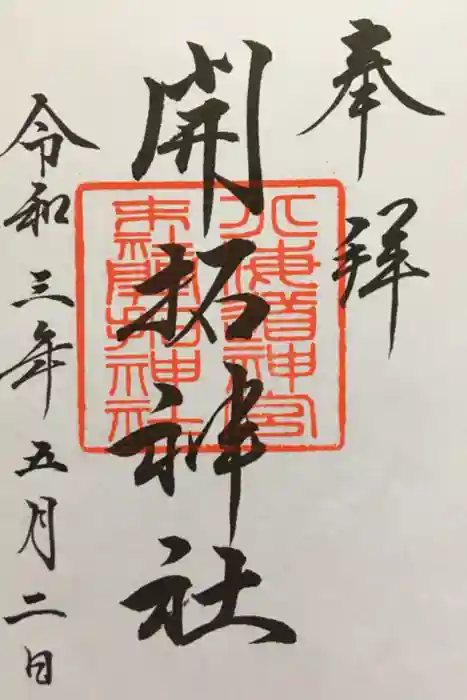 奉拝
開拓神社
北海道神宮
末社開拓神社
令和三年五月二日